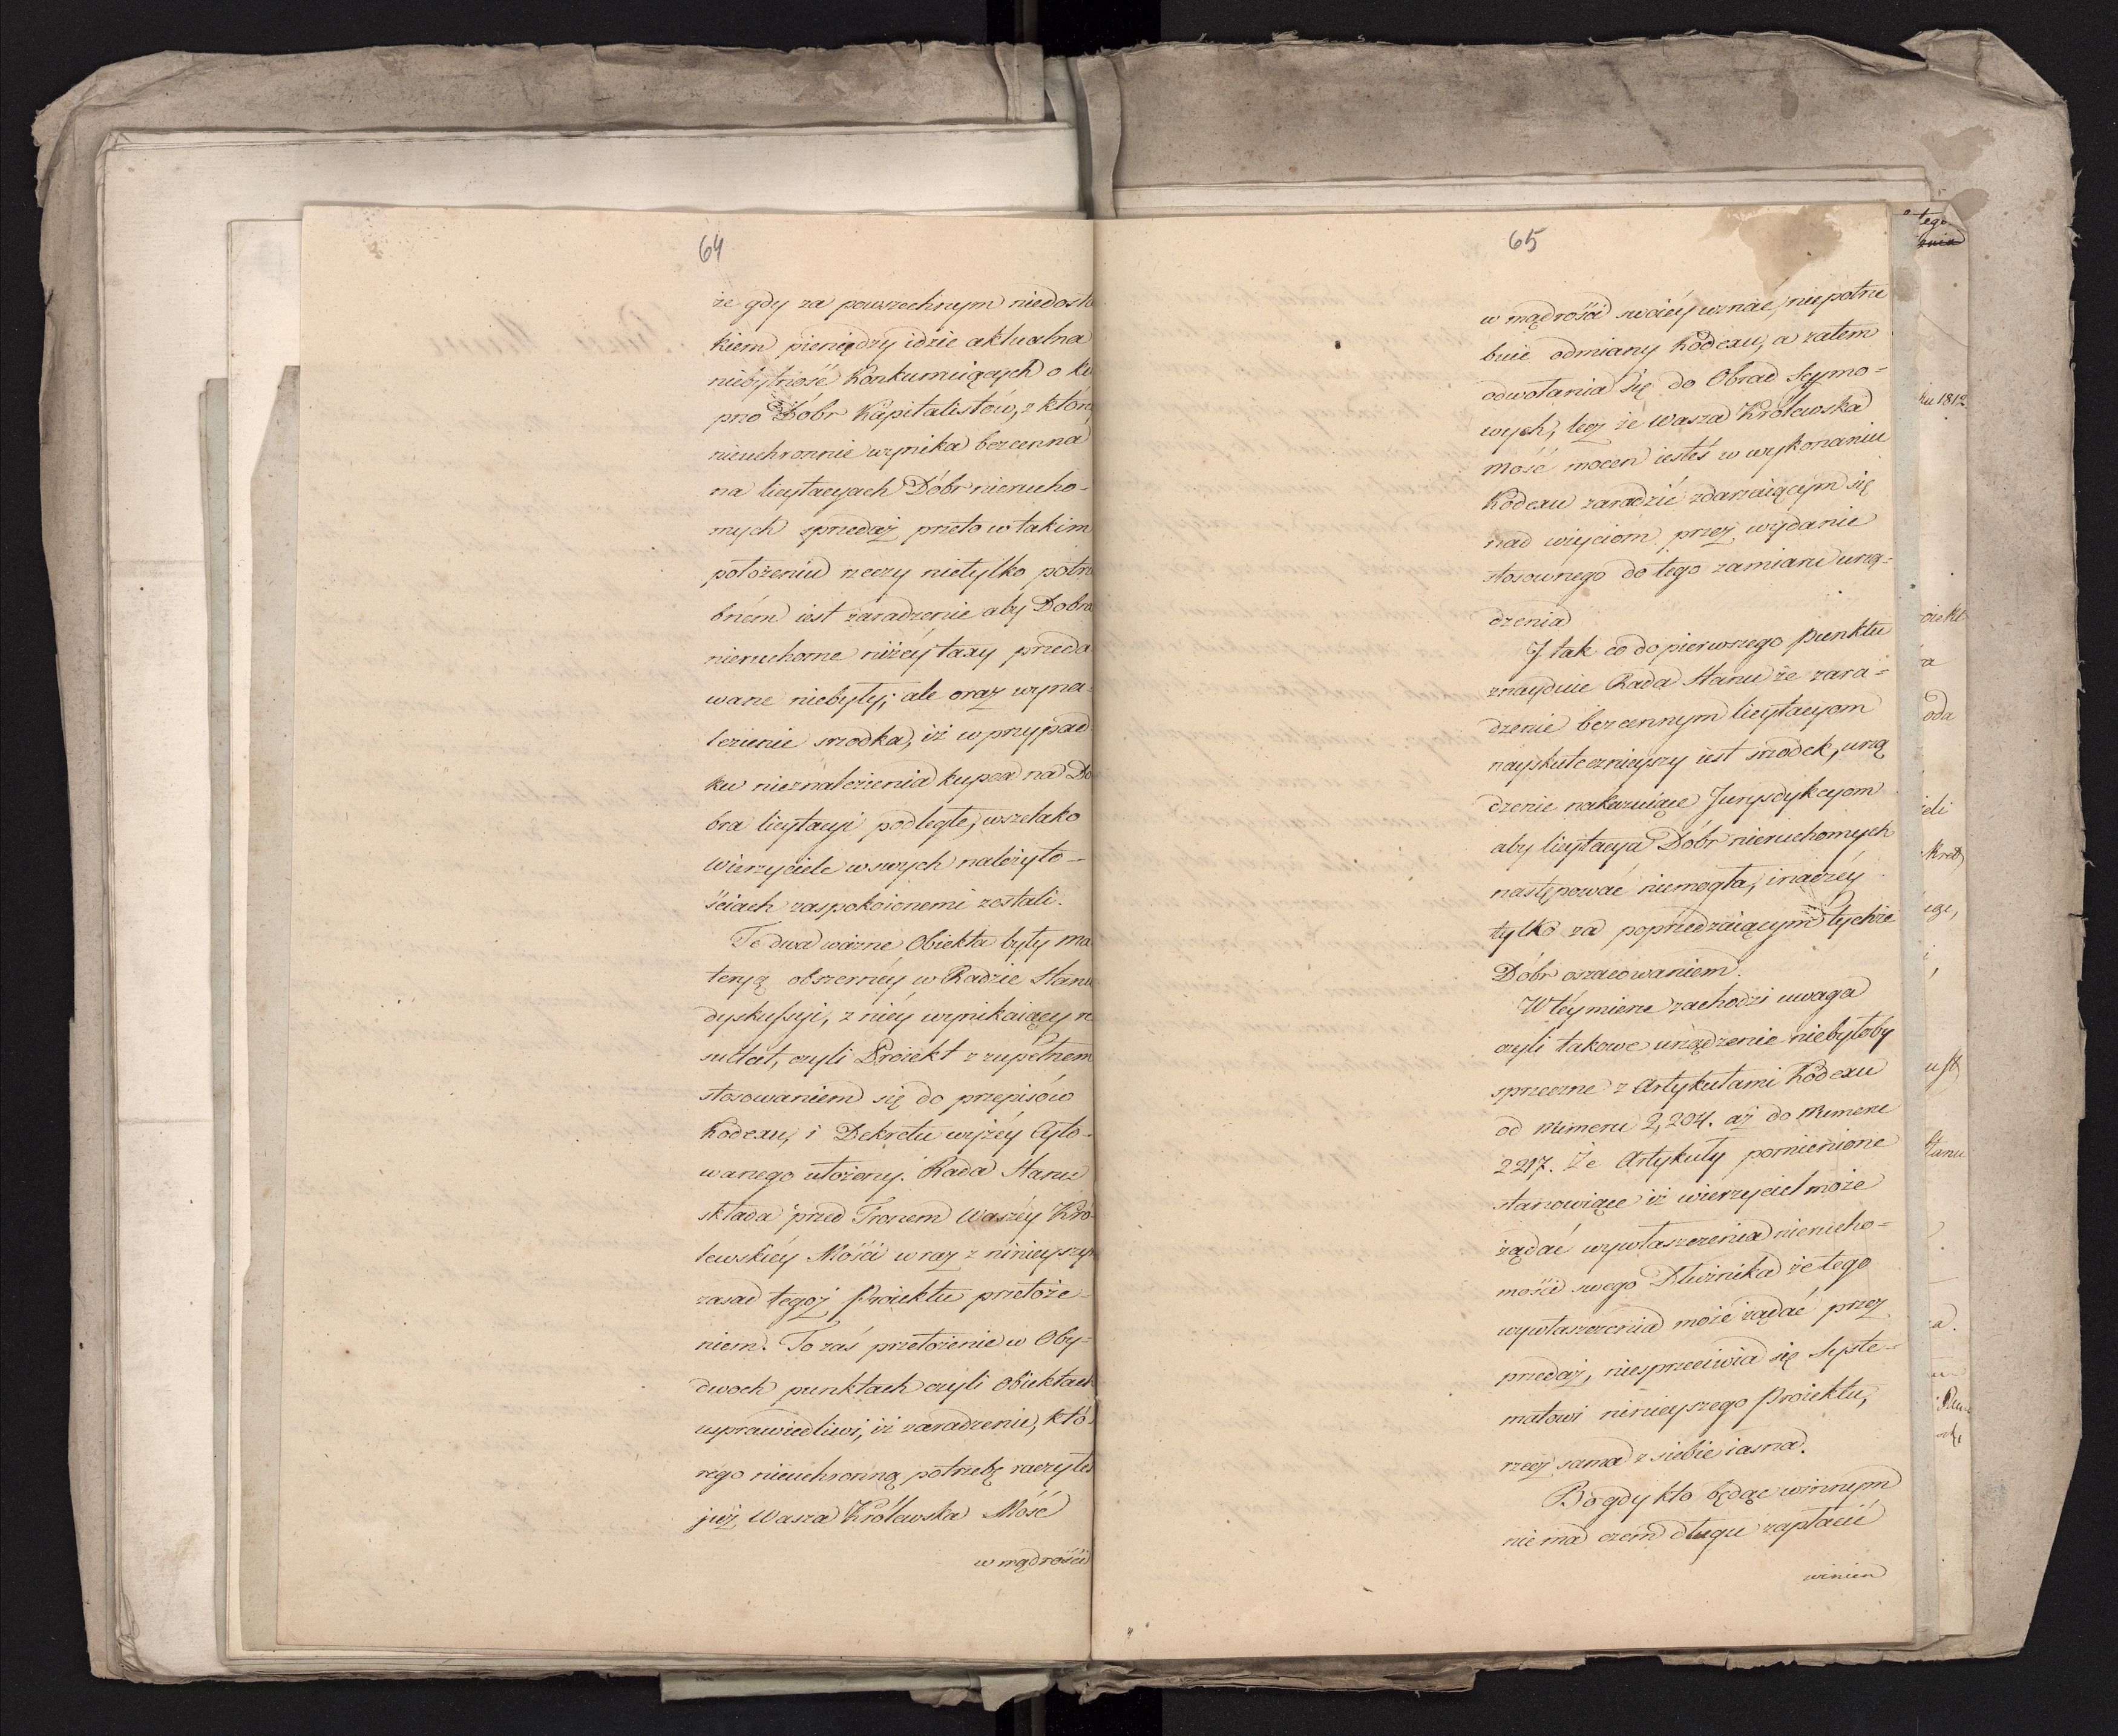 64
że gdy za powszechnym niedosta
kiem pieniędzy idzie aktualna
niebytność Konkurruiących o ku
pno Dóbr Kapitalistów, z które
nieuchronnie wynika bezcenna
na licytacyach Dóbr nierucho-
mych sprzedaż przeto w takim
położeniu rzeczy nietylko potrze
bném iest zaradzenie aby Dobra
nieruchome niżéy taxy przeda
wane niebyły; ale oraz wyna-
lezienie srzodka, iż w przypad
ku nieznalezienia kupca na Do
bra licytacyi podległe, wszelako
wierzyciele w swych należyto-
ściach zaspokoionemi zostali.
Te dwa ważne Obiekta były ma
teryą obszernéy w Radzie Stanu
dyskussyi, z niéy wynikaiący re
sultat, czyli Proiekt z zupełnem
stosowaniem się do przepisów
Kodexu, i Dekretu wyżéy Cyto-
wanego ułożony. Rada Stanu
składa przed Tronem Waszéy Kró-
lewskiéy Mości wraz z ninieyszym
zasad tegoż Proiektu przełoże-
niem. To zaś przełożenie w Oby-
dwoch punktach czyli Obiektach
usprawiedliwi, iż zaradzenie, któ
rego nieuchronną potrzebę raczyłeś
już Wasza Królewska Mość
w mądrości
65
w mądrości swoiéy uznać, niepotrze
buie odmiany Kodexu, a zatem
odwołania się do Obrad Seymo-
wych, lecz że Wasza Królewska
Mość mocen iesteś w wykonaniu
Kodexu zaradzić zdarzaiącym się
nad użyciom przez wydanie
stosownego do tego zamiaru urzą-
dzenia
I tak co do pierwszego punktu
znayduie Rada Stanu że zara-
dzenie bezcennym licytacyom
nayskutecznieyszy iest srzodek, urzą
dzenie nakazuiące Jurysdykcyom
aby licytacya Dóbr nieruchomych
następować niemogła, inaczéy
tylko za poprzedzaiącym tychże
Dóbr oszacowaniem.
W téy mierze zachodzi uwaga
czyli takowe urządzenie niebyłoby
sprzeczne z Artykułami Kodexu
od Numeru 2,204. aż do Numeru
2217. Że Artykuły pomienione
stanowiące iż wierzyciel może
żądać wywłaszczenia nierucho-
mości swego Dłużnika że tego
wywłaszczenia może żądać przez
przedaż, niesprzeciwia się Syste-
matowi ninieyszego Proiektu,
rzecz sama z siebie iasna.
Bo gdy kto będąc winnym
nie ma czém długu zapłacić
winien
tego
ku 1812
oda
ieli
Stanu